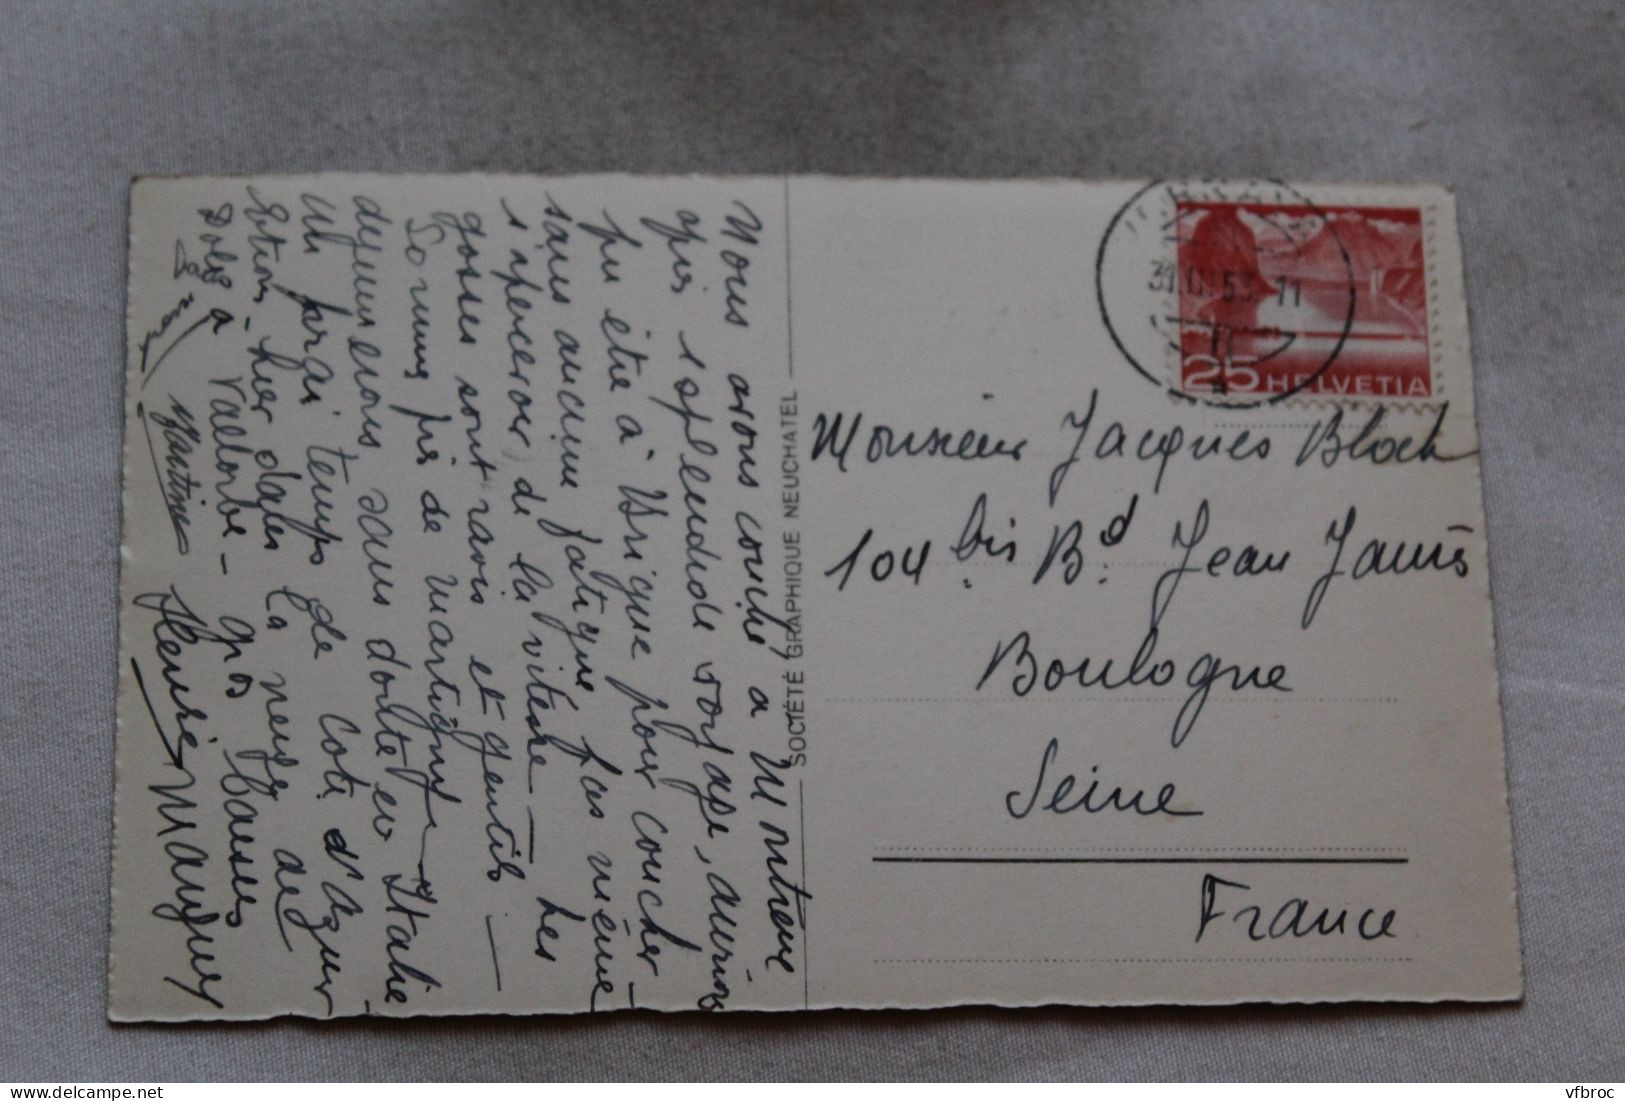 Nous avons couché à Montreux
après 1 splendide voyage, aurions
pu être à Brigue pour coucher
sans aucune fatigue, pas même
s'apercevoir de la vitesse - les
gosses sont ravis et gentils -
Sommes près de Martigny -
déjeunerons sans doute en Italie
Un vrai temps de Côte d'Azur
hier dans la neige de
Dole à Vallorbe - gros baisers
Martine
SOCIÉTÉ GRAPHIQUE NEUCHATEL
53.11
25 HELVETIA
Monsieur Jacques Bloch
104 bis Bd. Jean Jaurès
Boulogne
Seine
France
vfbroc